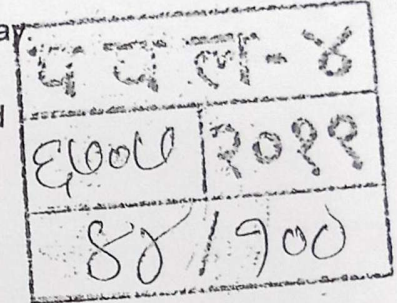 ay
प व ल - ४
६७०७ २०११
४४ / १००